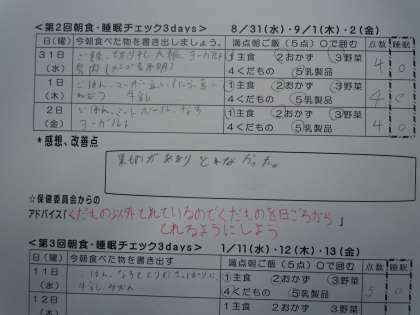 <第2回朝食・睡眠チェック3days> 8/31(水)・9/1(木)・2(金)
日(曜) 今朝食べた物を書き出しましょう。 満点朝ご飯(5点)○で囲む 点数 睡眠
31日(水) ヨーグルト ①主食 ②おかず ③野菜 4くだもの ⑤乳製品 4 ○
1日(木) ごはん、 牛乳 ①主食 ②おかず ③野菜 4くだもの ⑤乳製品 4
2日(金) ごはん、ミートボール、なっとう ヨーグルト ①主食 ②おかず ③野菜 4くだもの ⑤乳製品 4 ○
*感想、改善点
果物があまりとれなかった。
☆保健委員会からの
アドバイス「くだもの以外とれているのでくだものを日ごろから
とれるようにしよう」
<第3回朝食・睡眠チェック3days> 1/11(水)・12(木)・13(金)
日(曜) 今朝食べた物を書き出す 満点朝ご飯(5点)○で囲む 点数 睡眠
11日(水) ごはん、 牛乳 みかん 1主食 2おかず 3野菜 4くだもの 5乳製品 5 ○
12日 1主食 2おかず 3野菜